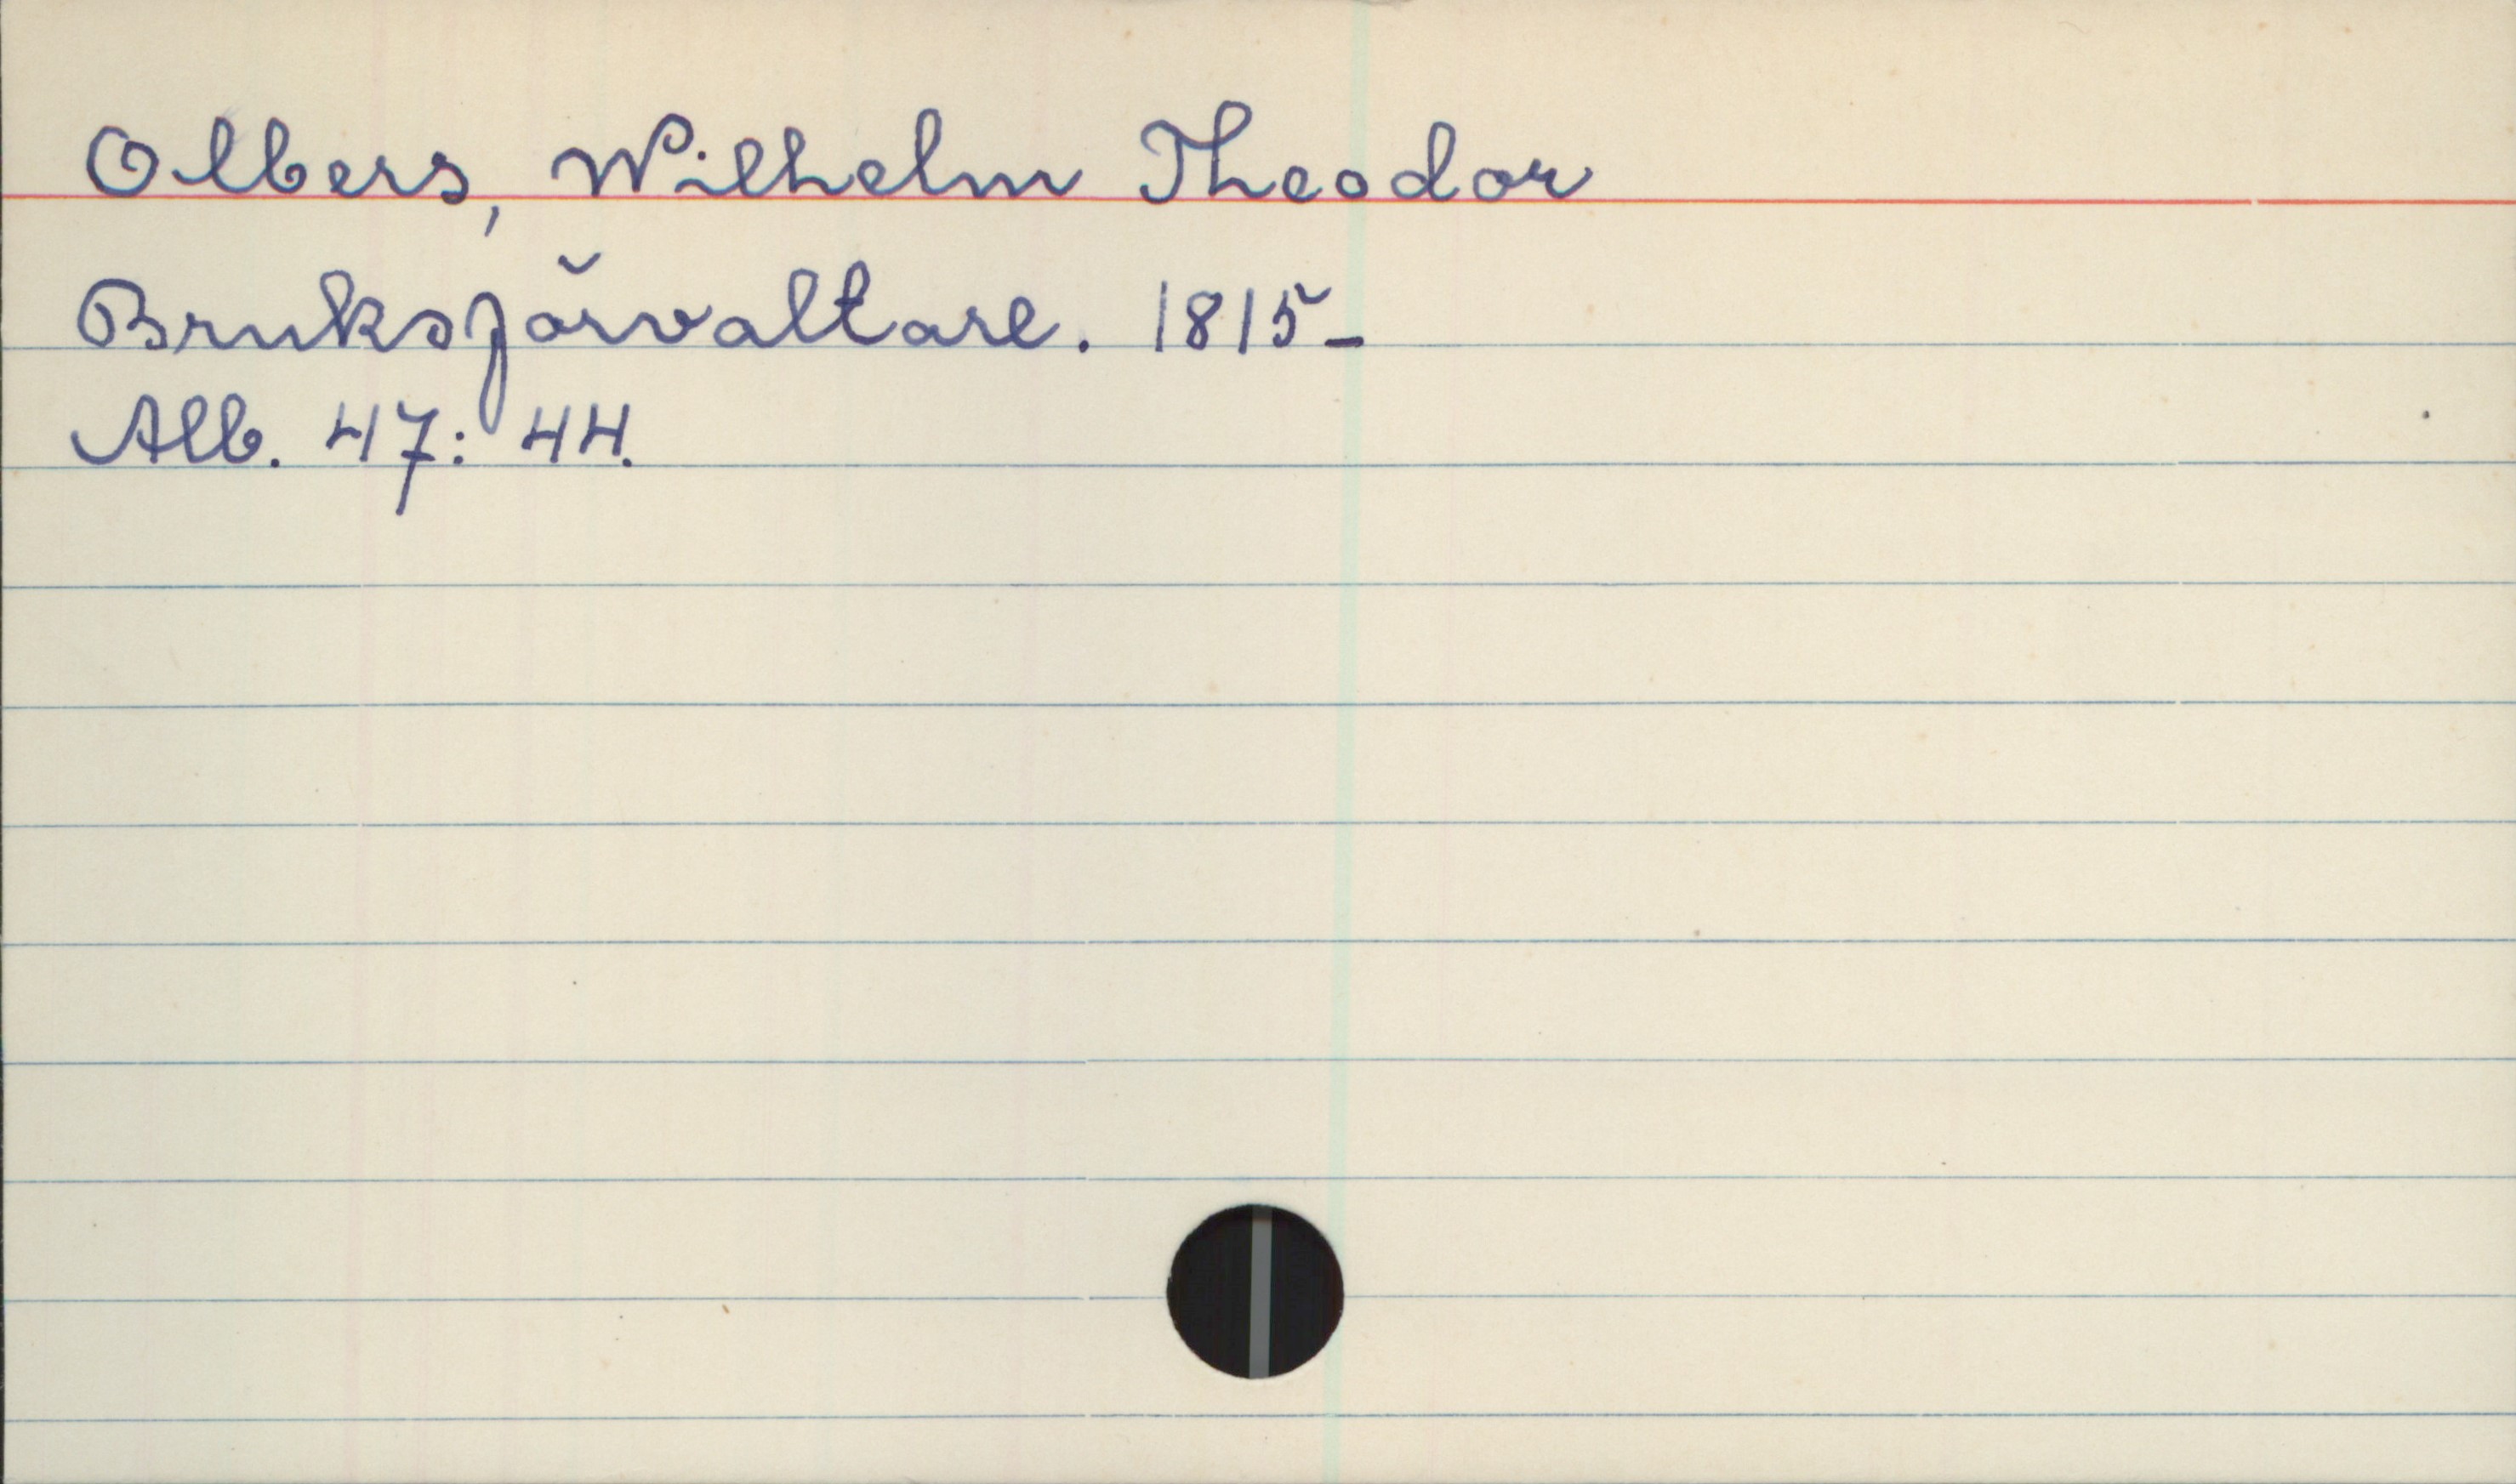 Olbers, Wilhelm Theodor
Bruksförvaltare. 1815-
Alb. 47: 44.